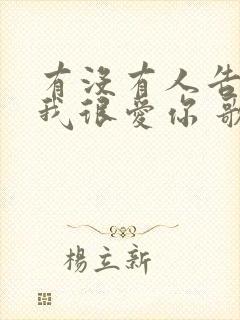 有没有人告
我很爱你 歌
楊立新